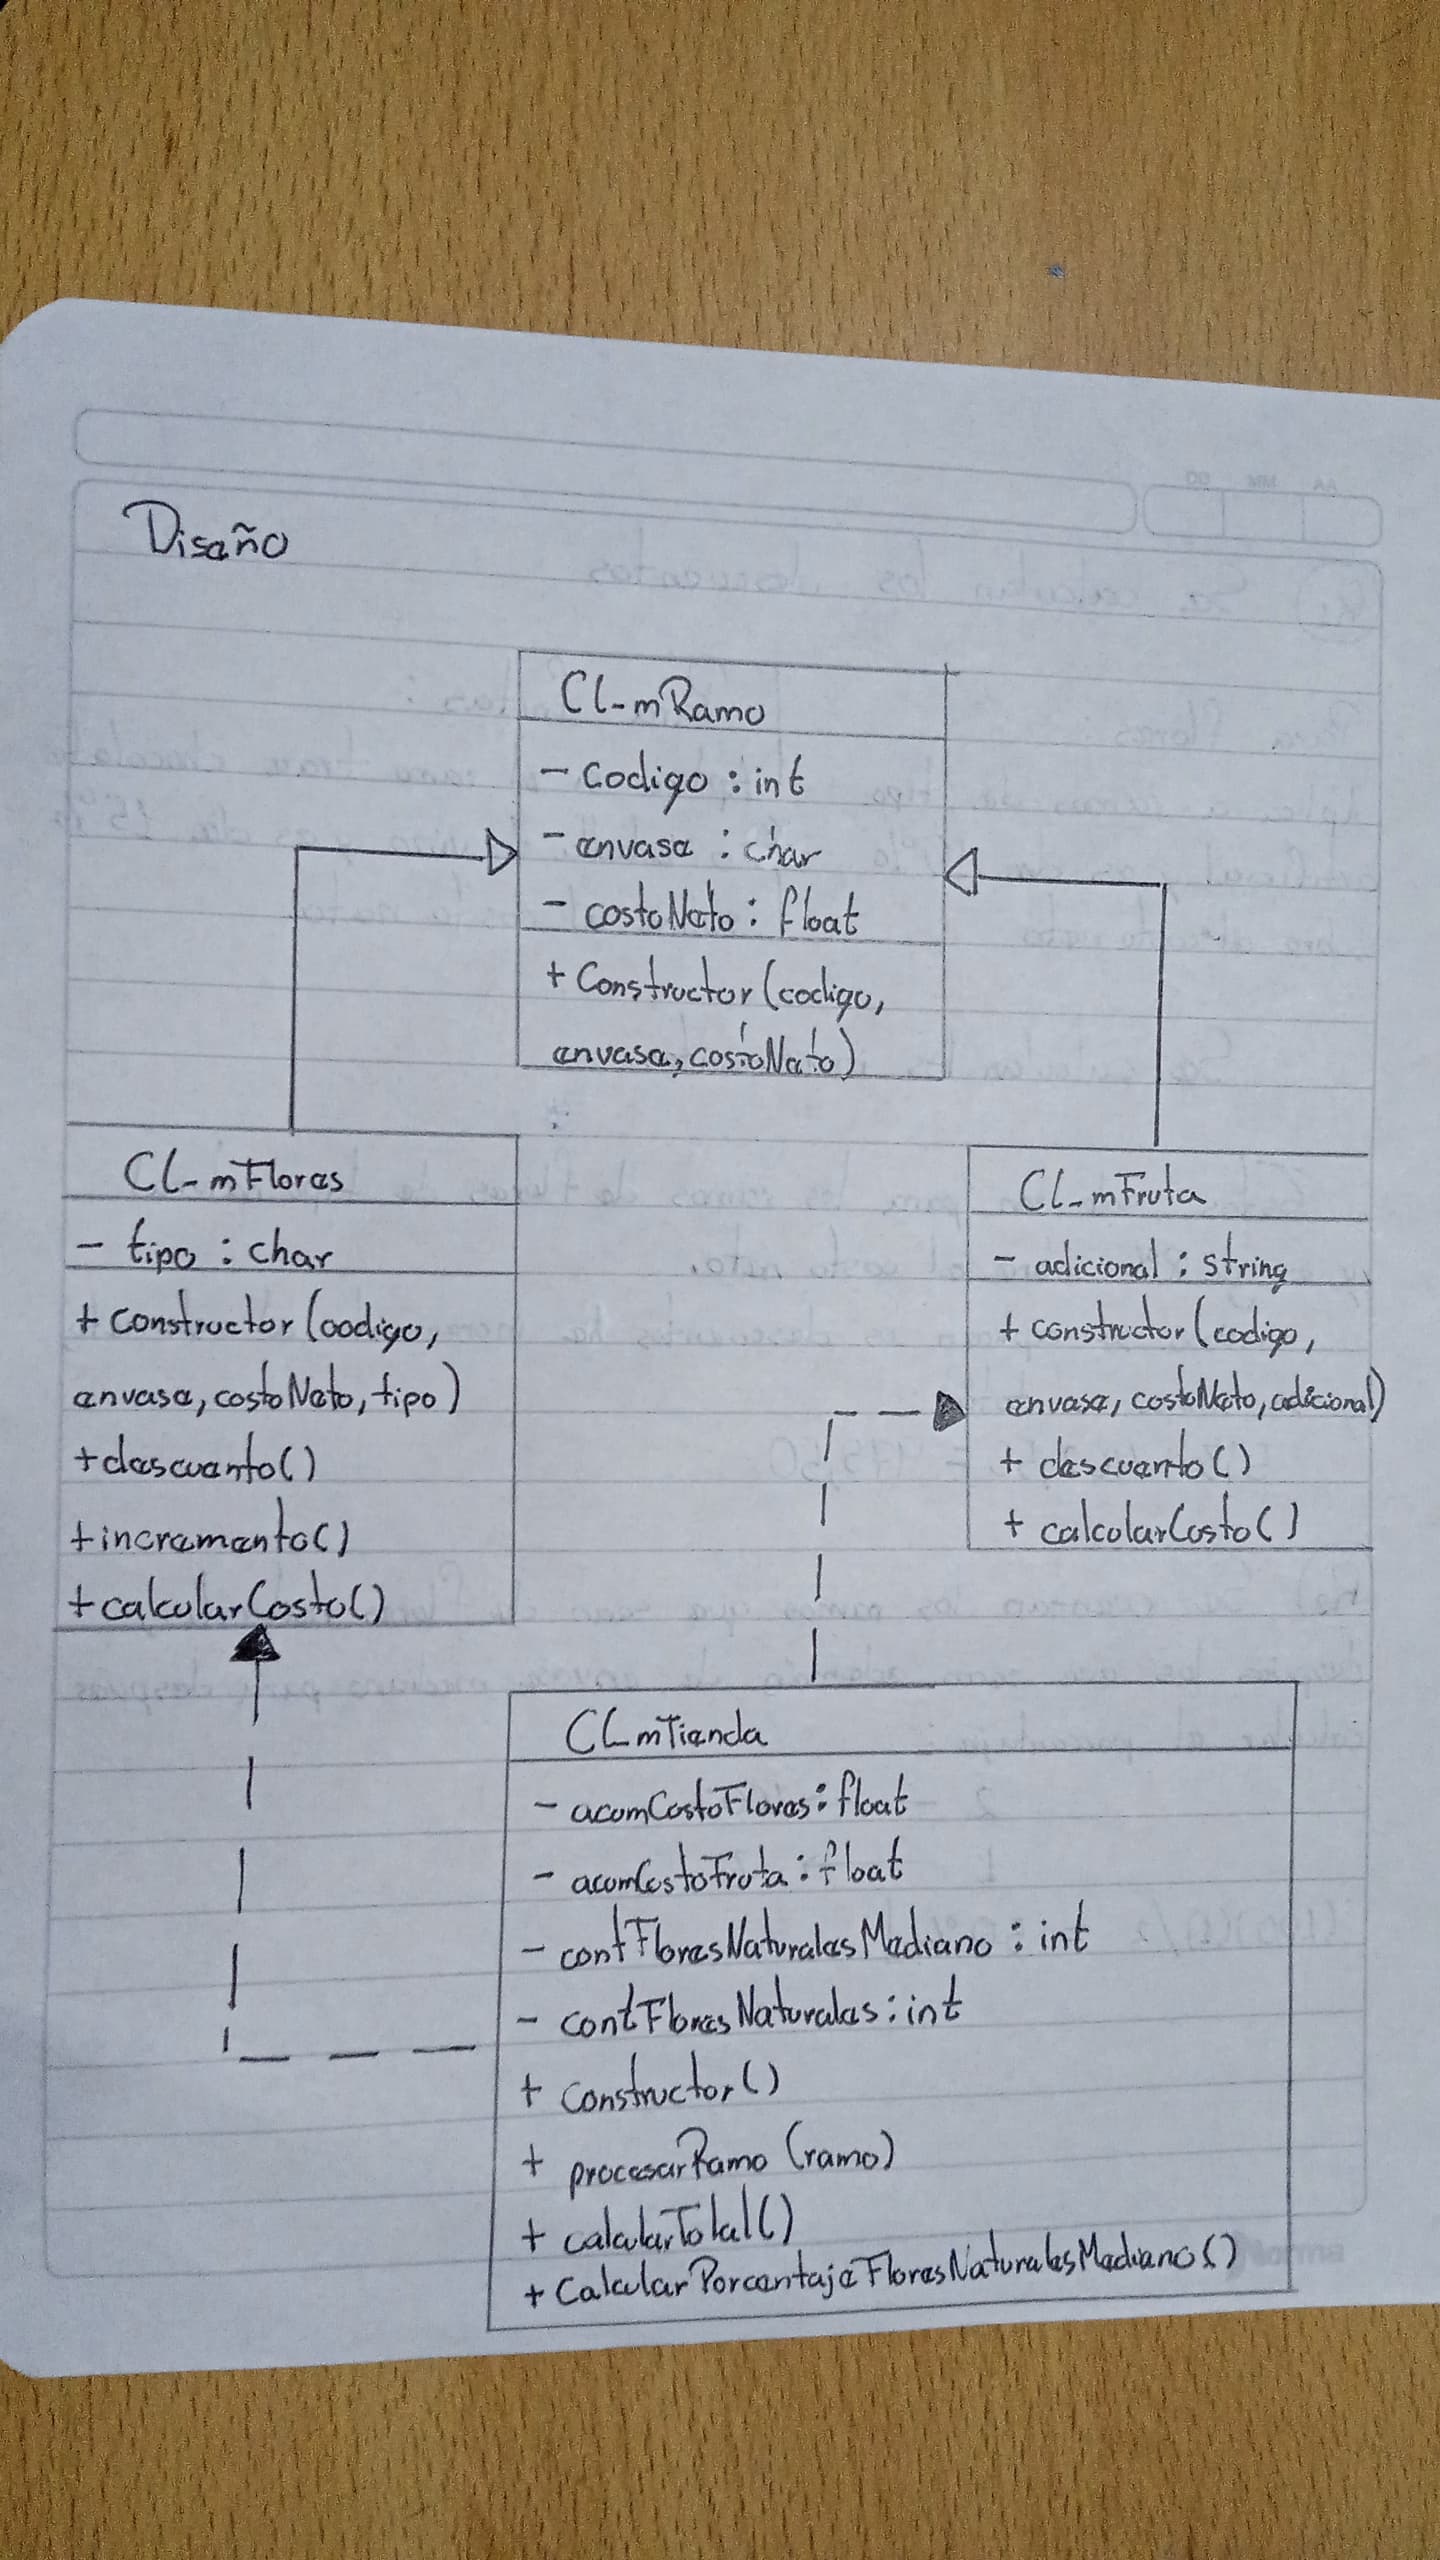 Diseño
Cl_mRamo
- codigo : int
- envase : char
- costoNeto : float
+ Constructor (codigo,
envase, costoNeto)
Cl_mFlores
- tipo : char
+ constructor (codigo,
envase, costoNeto, tipo)
+ descuento()
+ incremento()
+ calcularCosto()
Cl_mFruta
- adicional : string
+ constructor (codigo,
envase, costoNeto, adicional)
+ descuento()
+ calcularCosto()
Cl_mTienda
- acumCostoFlores : float
- acumCostoFruta : float
- contFloresNaturalesMediano : int
- contFloresNaturales : int
+ constructor()
+ procesarRamo (ramo)
+ calcularTotal()
+ CalcularPorcentajeFloresNaturalesMediano()